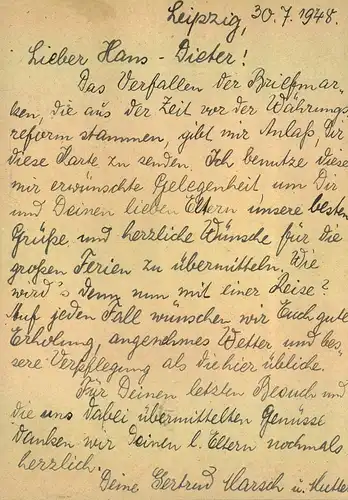 Leipzig, 30.7.1948.
Lieber Hans-Dieter!
Das Verfallen der Briefmar-
ken, die aus der Zeit vor der Währungs
reform stammen, gibt mir Anlaß, Dir
diese Karte zu senden. Ich benutze diese
mir erwünschte Gelegenheit um Dir
und Deinen lieben Eltern unsere besten
Grüße und herzliche Wünsche für die
großen Ferien zu übermitteln. Wie
wird's denn nun mit einer Reise?
Auf jeden Fall wünschen wir Euch gute
Erholung, angenehmes Wetter und bes-
sere Verpflegung als die hier übliche.
Für Deinen letzten Besuch und
die uns dabei übermittelten Genüsse
danken wir Deinen l. Eltern nochmals
herzlich.
Deine Gertrud Marsch u. Mutter